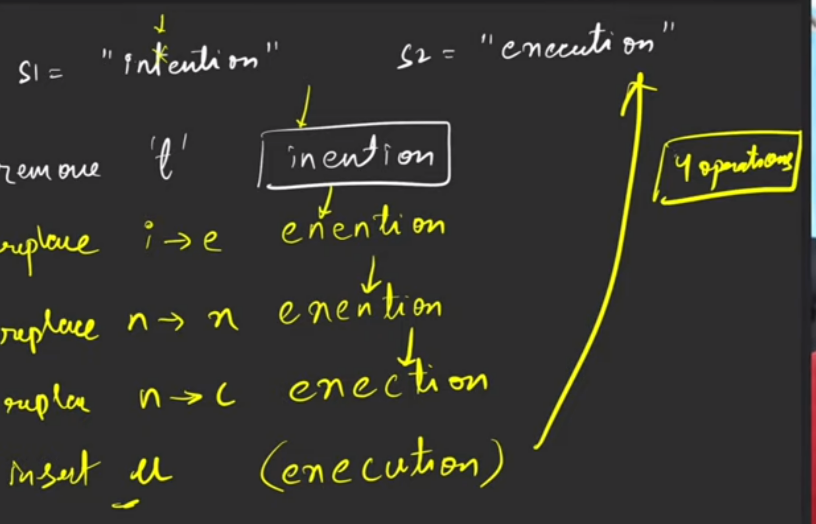 S1 = "intention" S2 = "execution"
remove 't' inention
4 operations
replace i → e enention
replace n → x exention
replace n → c exection
insert u (execution)